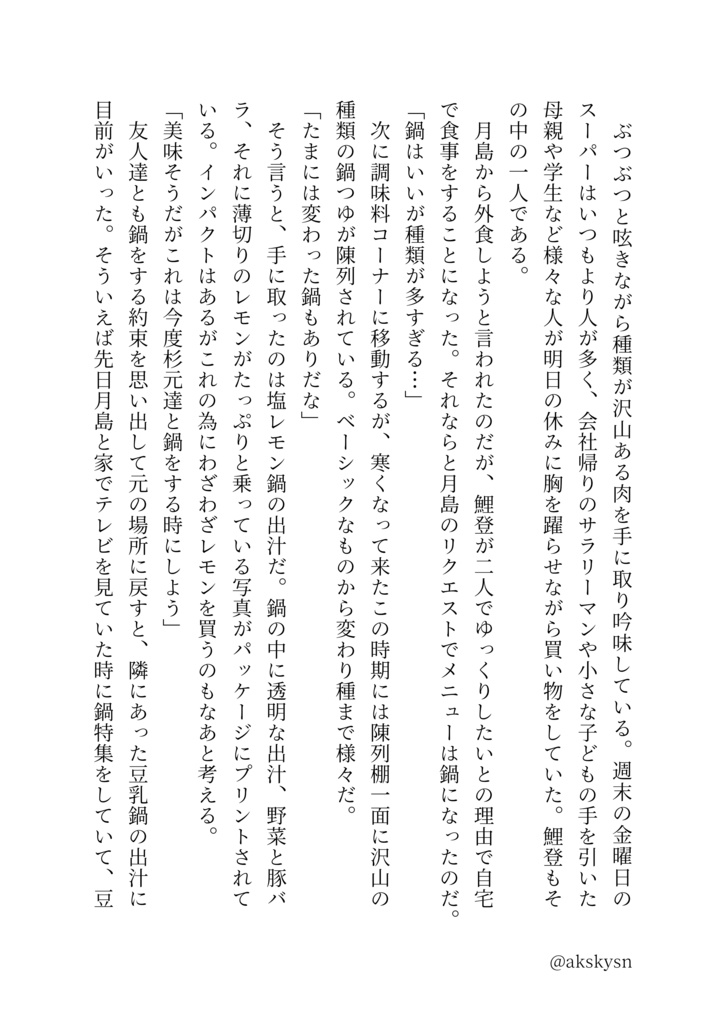 ぶつぶつと呟きながら種類が沢山ある肉を手に取り吟味している。週末の金曜日の
スーパーはいつもより人が多く、会社帰りのサラリーマンや小さな子どもの手を引いた
母親や学生など様々な人が明日の休みに胸を躍らせながら買い物をしていた。鯉登もそ
の中の一人である。
　月島から外食しようと言われたのだが、鯉登が二人でゆっくりしたいとの理由で自宅
で食事をすることになった。それならと月島のリクエストでメニューは鍋になったのだ。
「鍋はいいが種類が多すぎる…」
　次に調味料コーナーに移動するが、寒くなって来たこの時期には陳列棚一面に沢山の
種類の鍋つゆが陳列されている。ベーシックなものから変わり種まで様々だ。
「たまには変わった鍋もありだな」
　そう言うと、手に取ったのは塩レモン鍋の出汁だ。鍋の中に透明な出汁、野菜と豚バ
ラ、それに薄切りのレモンがたっぷりと乗っている写真がパッケージにプリントされて
いる。インパクトはあるがこれの為にわざわざレモンを買うのもなあと考える。
「美味そうだがこれは今度杉元達と鍋をする時にしよう」
　友人達とも鍋をする約束を思い出して元の場所に戻すと、隣にあった豆乳鍋の出汁に
目前がいった。そういえば先日月島と家でテレビを見ていた時に鍋特集をしていて、豆
@akskysn